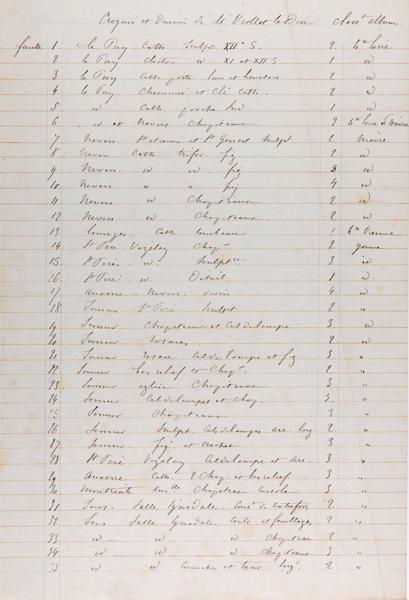 Croquis et dessins de M Viollet le Duc 1er album
feuille 1 le Puy Cath. Sculpt. XIIe S. 2 hte Loire
2 le Puy cloitre id XI et XII S 2 id
3 le Puy Cath. porte 2 id
4 le Puy Cheminée et clé Cath. 2 id
5 id Cath. porche Sud 1 id
6 id et Nevers Chapiteaux 2 hte Loire et Nièvre
7 Nevers St etienne et St Genest Sculpt. 2 Nièvre
8 Nevers Cath. trifor. fig. 2 id
9 Nevers id id fig 3 id
10 Nevers " " fig 4 id
11 Nevers id Chapiteaux 2 id
12 Nevers id Chapiteaux 2 id
13 Limoges Cath. tombeau 1 hte Vienne
14 St Père Vezelay Chapx 2 Yonne
15 St Père id Sculptre 3 id
16 St Père id Détail 1 id
17 Auxerre - Nevers 4 id
18 Semur St Père Sculpt 2 "
19 Semur Chapiteaux et Cul de lampe 3 id
20 Semur 2 id
21 Semur Cul de lampe et fig 3 "
22 Semur bas relief et Chapx. 2 "
23 Semur eglise Chapiteaux 3 "
24 Semur Cul de lampe et Chap. 3 "
25 Semur Chapiteaux 3 "
26 Semur Sculpt. Culs de lampe 2 "
27 Semur fig. et crochet 3 "
28 St Père Vezelay Cul de lampe et arc. 3 "
29 Auxerre Cath. 2 Chap. et bas relief 3 "
30 Montréale Chapiteau Console 3 "
31 Sens Salle Synodale de contrefort 2 "
32 Sens Salle Synodale et feuillages 2 "
33 id id id Chapiteau 2 "
34 id id id Chapiteaux 3 "
35 id id et 2 "